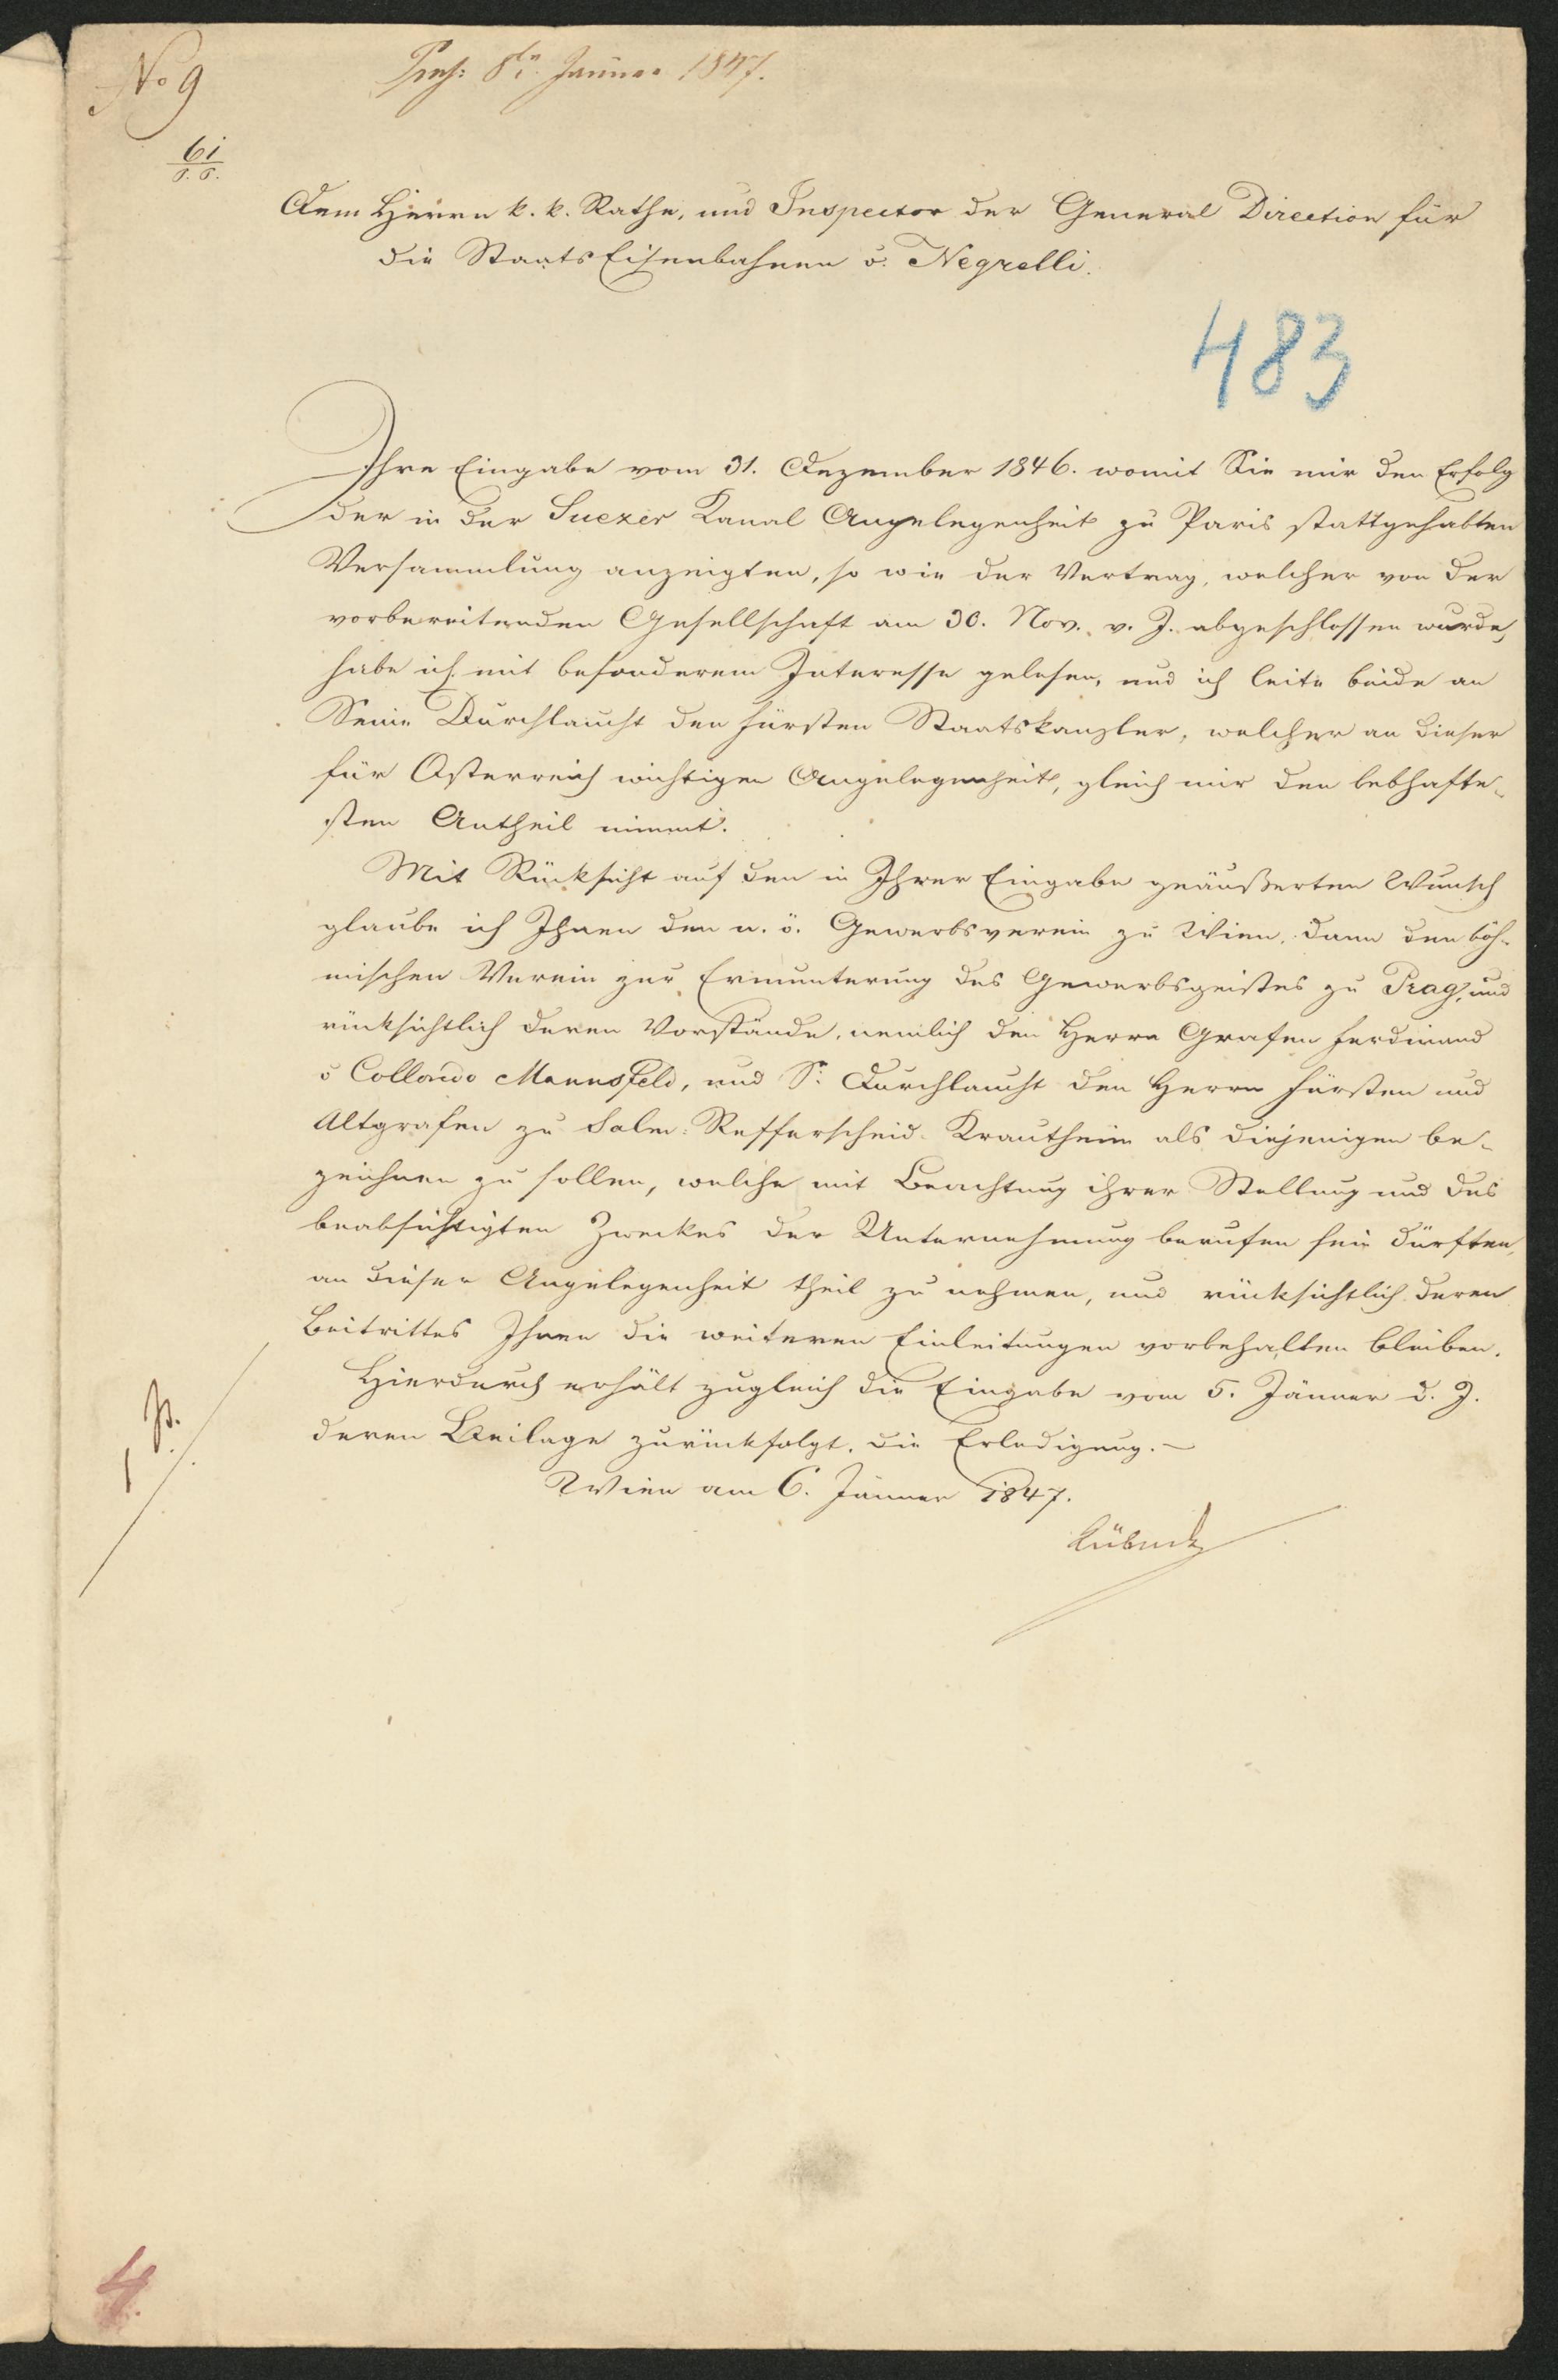 No 9
Pras: 8t. Januar 1847.
61
Dem Herrn k. k. Rathe, und Inspector der General Direction für
die Staats Eisenbahnen v. Negrelli.
483
Ihre Eingabe vom 31. Dezember 1846. womit Sie mir den Erfolg
der in der Suezer Kanal Angelegenheit zu Paris stattgehabten
Versammlung anzeigten, so wie der Vertrag, welcher von der
vorbereitenden Gesellschaft am 30. Nov. v. J. abgeschlossen wurde,
habe ich mit besonderem Interesse gelesen, und ich leite beide an
Seine Durchlaucht den Fürsten Staatskanzler, welcher an dieser
für Osterreich wichtigen Angelegenheit, gleich mir den lebhafte-
sten Antheil nimmt.
Mit Rücksicht auf den in Ihrer Eingabe geäußerten Wunsch
glaube ich Ihnen den n. ö. Gewerbsverein zu Wien, dann den böh-
mischen Verein zur Ermunterung des Gewerbsgeistes zu Prag, und
rücksichtlich deren Vorstände, nemlich den Herrn Grafen Ferdinand
v Colloredo Mannsfeld, und Sr. Durchlaucht den Herrn Fürsten und
Altgrafen zu Salm-Refferscheid-Krautheim als diejenigen be-
zeichnen zu sollen, welche mit Beachtung ihrer Stellung und des
beabsichtigten Zweckes der Unternehmung berufen sein dürften,
an dieser Angelegenheit theil zu nehmen, und rücksichtlich deren
Beitrittes Ihnen die weiteren Einleitungen vorbehalten bleiben.
Hierdurch erhält zugleich die Eingabe vom 5. Jänner d. J.
deren Beilage zurückfolgt, die Erledigung.—
Wien am 6. Jänner 1847.
Kübeck
4.